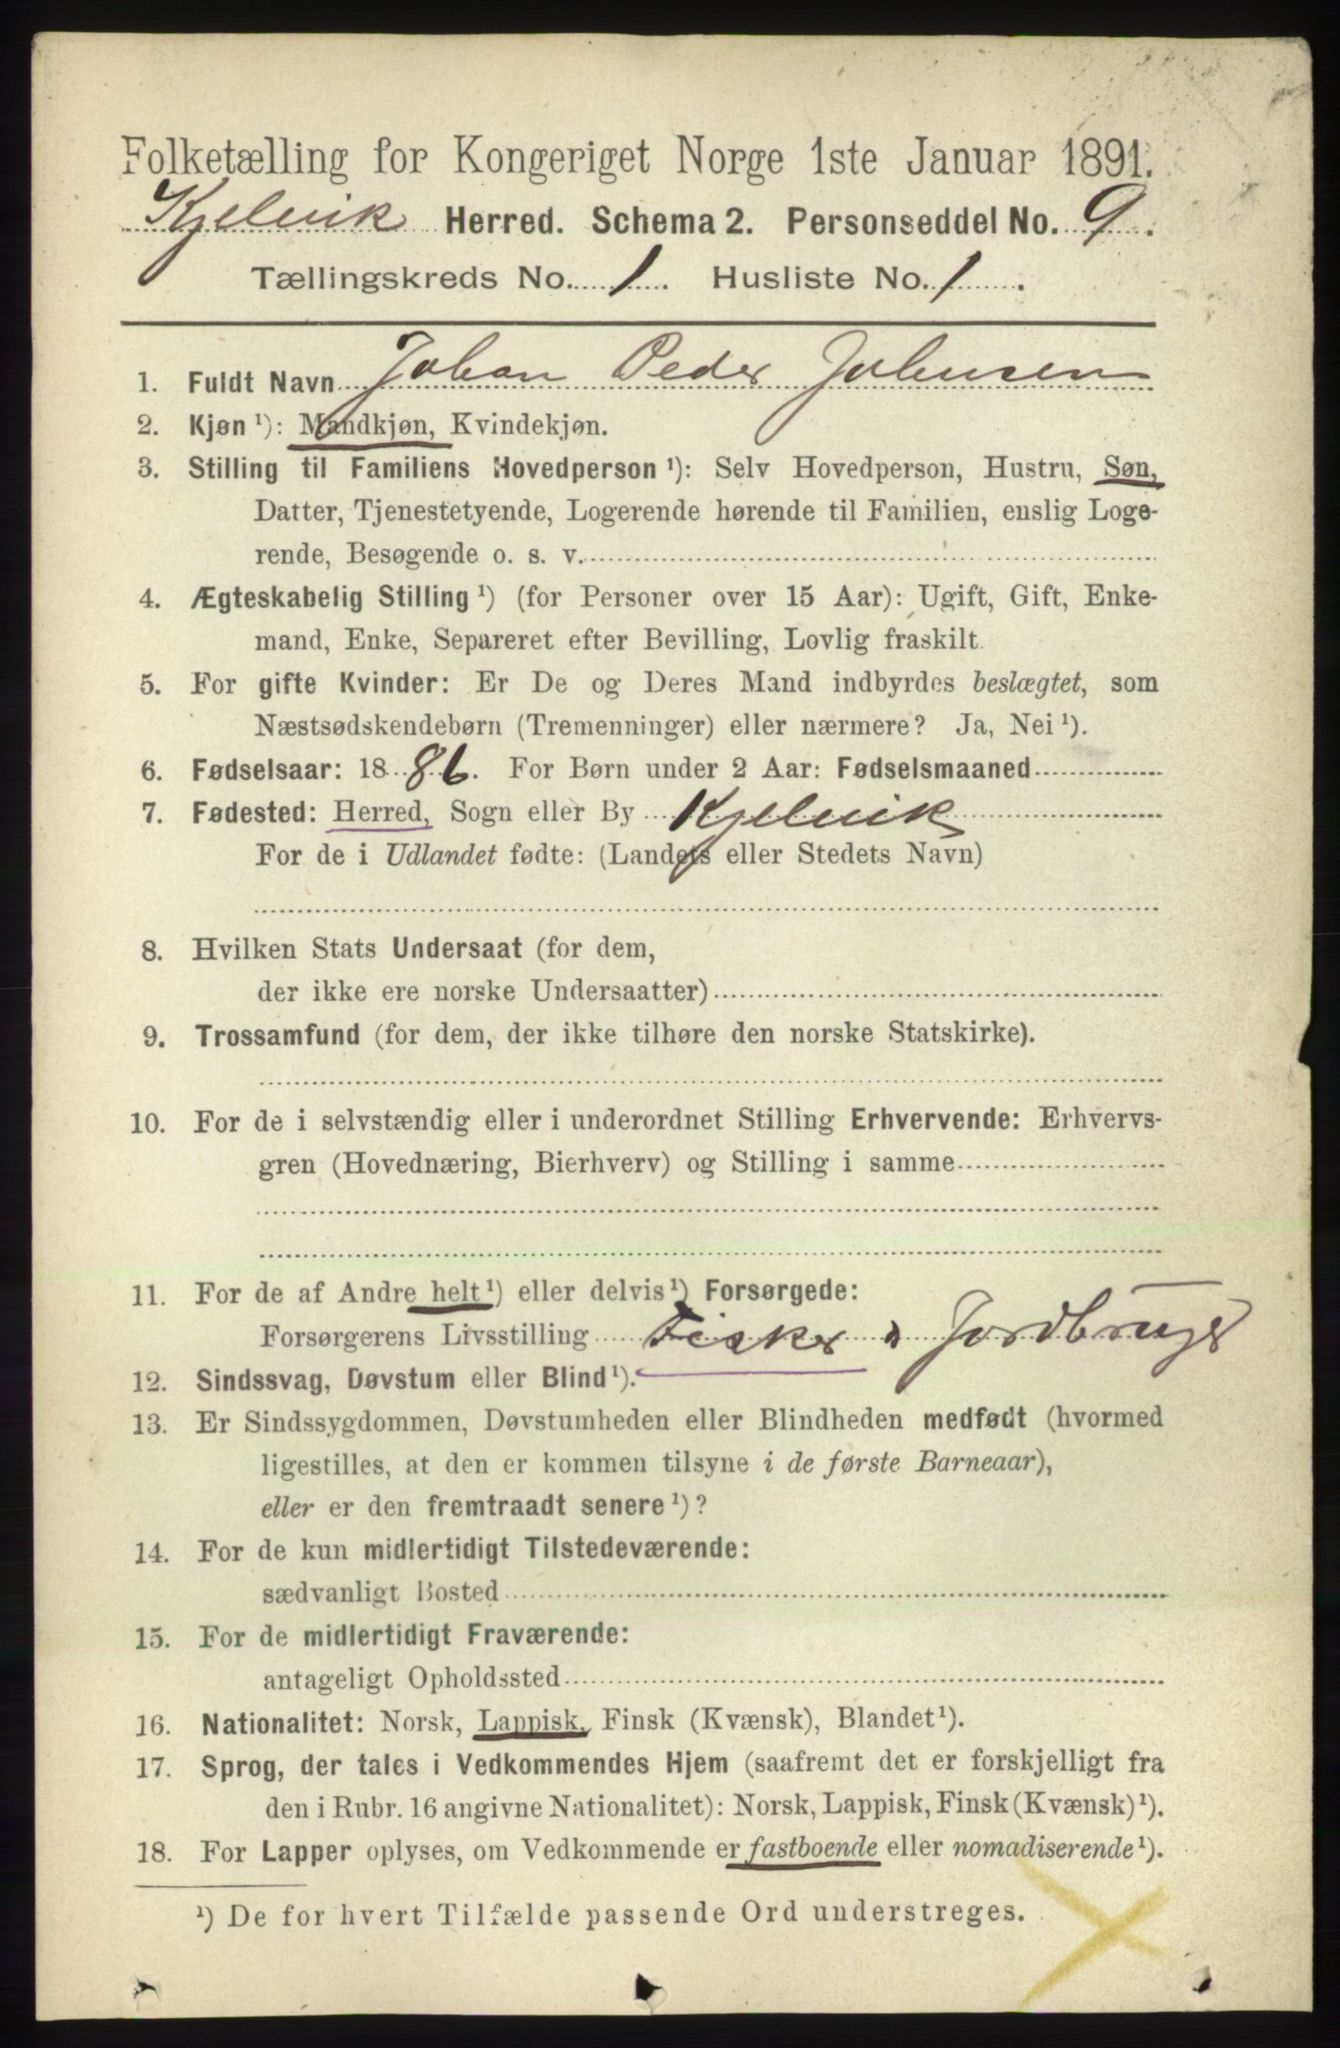 Folketælling for Kongeriget Norge 1ste Januar 1891.
Kjelvik Herred. Schema 2. Personseddel No. 9.
Tællingskreds No. 1. Husliste No. 1.
1. Fuldt Navn Johan Peder Johnsen
2. Kjøn ¹): Mandkjøn, Kvindekjøn.
3. Stilling til Familiens Hovedperson ¹): Selv Hovedperson, Hustru, Søn,
Datter, Tjenestetyende, Logerende hørende til Familien, enslig Loge-
rende, Besøgende o. s. v.
4. Ægteskabelig Stilling ¹) (for Personer over 15 Aar): Ugift, Gift, Enke-
mand, Enke, Separeret efter Bevilling, Lovlig fraskilt.
5. For gifte Kvinder: Er De og Deres Mand indbyrdes beslægtet, som
Næstsødskendebørn (Tremenninger) eller nærmere? Ja, Nei ¹).
6. Fødselsaar: 1886. For Børn under 2 Aar: Fødselsmaaned
7. Fødested: Herred, Sogn eller By Kjelvik
For de i Udlandet fødte: (Landets eller Stedets Navn)
8. Hvilken Stats Undersaat (for dem,
der ikke ere norske Undersaatter)
9. Trossamfund (for dem, der ikke tilhøre den norske Statskirke).
10. For de i selvstændig eller i underordnet Stilling Erhvervende: Erhvervs-
gren (Hovednæring, Bierhverv) og Stilling i samme
11. For de af Andre helt ¹) eller delvis ¹) Forsørgede:
Forsørgerens Livsstilling Fisker " Jordbruger
12. Sindssvag, Døvstum eller Blind ¹).
13. Er Sindssygdommen, Døvstumheden eller Blindheden medfødt (hvormed
ligestilles, at den er kommen tilsyne i de første Barneaar),
eller er den fremtraadt senere ¹)?
14. For de kun midlertidigt Tilstedeværende:
sædvanligt Bosted
15. For de midlertidigt Fraværende:
antageligt Opholdssted
16. Nationalitet: Norsk, Lappisk, Finsk (Kvænsk), Blandet ¹).
17. Sprog, der tales i Vedkommendes Hjem (saafremt det er forskjelligt fra
den i Rubr. 16 angivne Nationalitet): Norsk, Lappisk, Finsk (Kvænsk) ¹).
18. For Lapper oplyses, om Vedkommende er fastboende eller nomadiserende ¹).
¹) De for hvert Tilfælde passende Ord understreges.